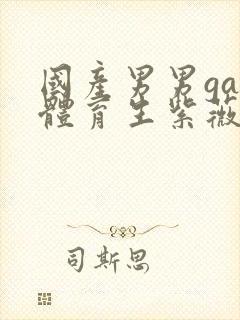 國産男男ga
體育生紫薇
司斯思